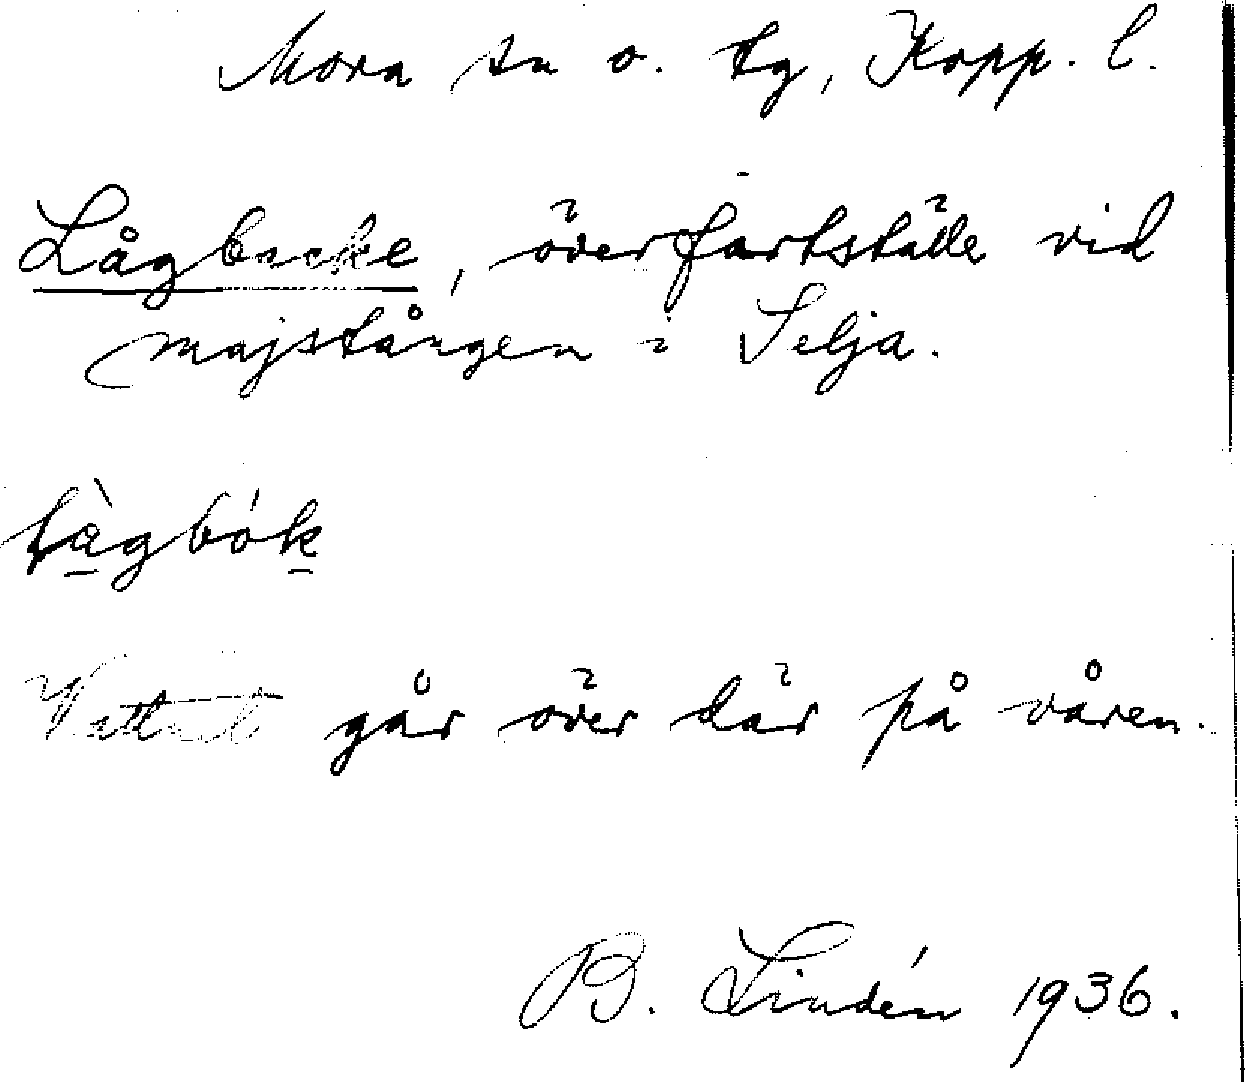 Mora sn o. tg, Kopp. l.
Lågbacke, överfartställe vid
majstången i Selja.
lògbók
Vattnet går över där på våren.
B. Lindén 1936.